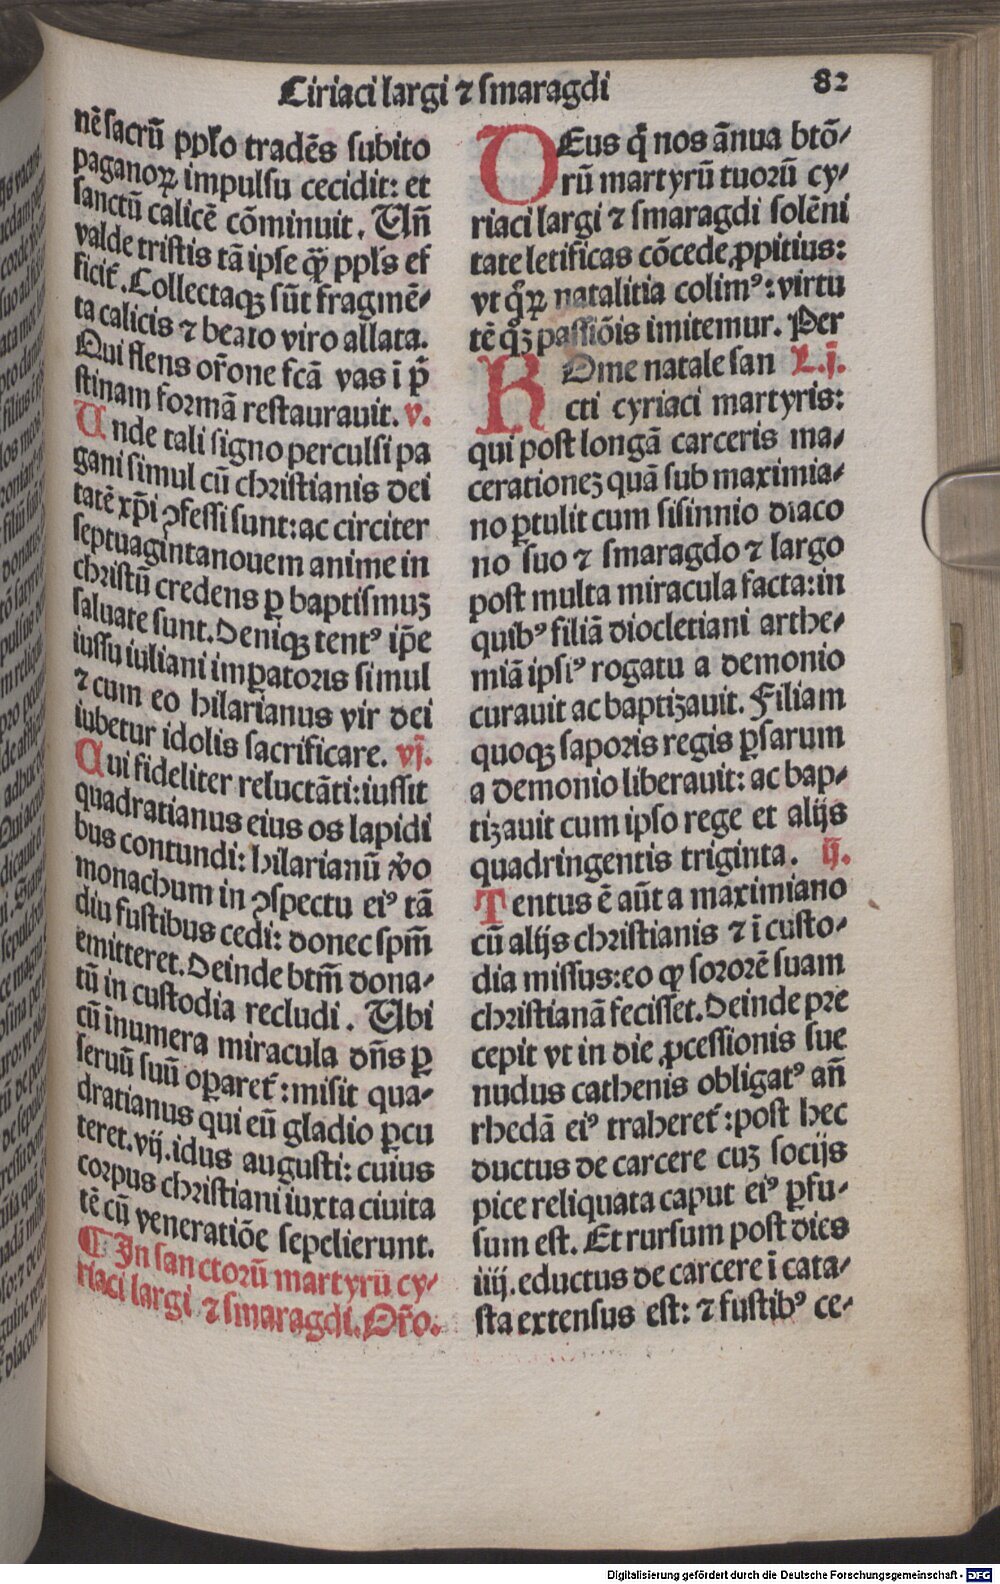 Ciriaci largi ⁊ smaragdi
82
nē sacrū pplo tradēs subito
paganoꝝ impulsu cecidit: et
sanctū calicē cōminuit. Un̄
valde tristis tā ipse ꝙ̄ ppls ef
ficit᷑. Collectaqꝫ sūt fragmē-
ta calicis ⁊ beato viro allata.
Qui flens or̄one fcā vas i p̄
stinam formā restaurauit. v.
Unde tali signo perculsi pa
gani simul cū christianis dei
tatē xp̄i ꝯfessi sunt: ac circiter
septuagintanouem anime in
christū credens ꝑ baptismuꝫ
saluate sunt. Deniqꝫ tentꝰ ip̄e
iussu iuliani imꝑatoris simul
⁊ cum eo hilarianus vir dei
iubetur idolis sacrificare. vj.
Qui fideliter reluctāti: iussit
quadratianus eius os lapidi
bus contundi: hilarianū v̊o
monachum in ꝯspectu eiꝰ tā
diu fustibus cedi: donec spm̄
emitteret. Deinde btm̄ dona-
tū in custodia recludi. Ubi
cū inumera miracula dn̄s ꝑ
seruū suū oꝑaret᷑: misit qua-
dratianus qui eū gladio ꝑcu
teret. vij. idus augusti: cuius
corpus christiani iuxta ciuita
tē cū veneratiōe sepelierunt.
¶ In sanctorū martyrū cy-
riaci largi ⁊ smaragdi. Or̄o.
DEus q̄ nos ānua btō-
rū martyrū tuorū cy-
riaci largi ⁊ smaragdi solēni
tate letificas cōcede ꝓpitius:
vt q̄ꝝ natalitia colimꝰ: virtu
tē qꝫ passiōis imitemur. Per
ROme natale san L.j.
cti cyriaci martyris:
qui post longā carceris ma-
cerationeꝫ quā sub maximia-
no ꝑtulit cum sisinnio diaco
no suo ⁊ smaragdo ⁊ largo
post multa miracula facta: in
quibꝰ filiā diocletiani arthe-
miā ipsiꝰ rogatu a demonio
curauit ac baptizauit. Filiam
quoqꝫ saporis regis ꝑsarum
a demonio liberauit: ac bap-
tizauit cum ipso rege et alijs
quadringentis triginta. ij.
Tentus ē aūt a maximiano
cū alijs christianis ⁊ ī custo-
dia missus: eo ꝙ sororē suam
christianā fecisset. Deinde pre
cepit vt in die ꝓcessionis sue
nudus cathenis obligatꝰ an̄
rhedā eiꝰ traheret᷑: post hec
ductus de carcere cuꝫ socijs
pice reliquata caput eiꝰ ꝑfu-
sum est. Et rursum post dies
iiij. eductus de carcere ī cata-
sta extensus est: ⁊ fustibꝰ ce-
Digitalisierung gefördert durch die Deutsche Forschungsgemeinschaft - DFG